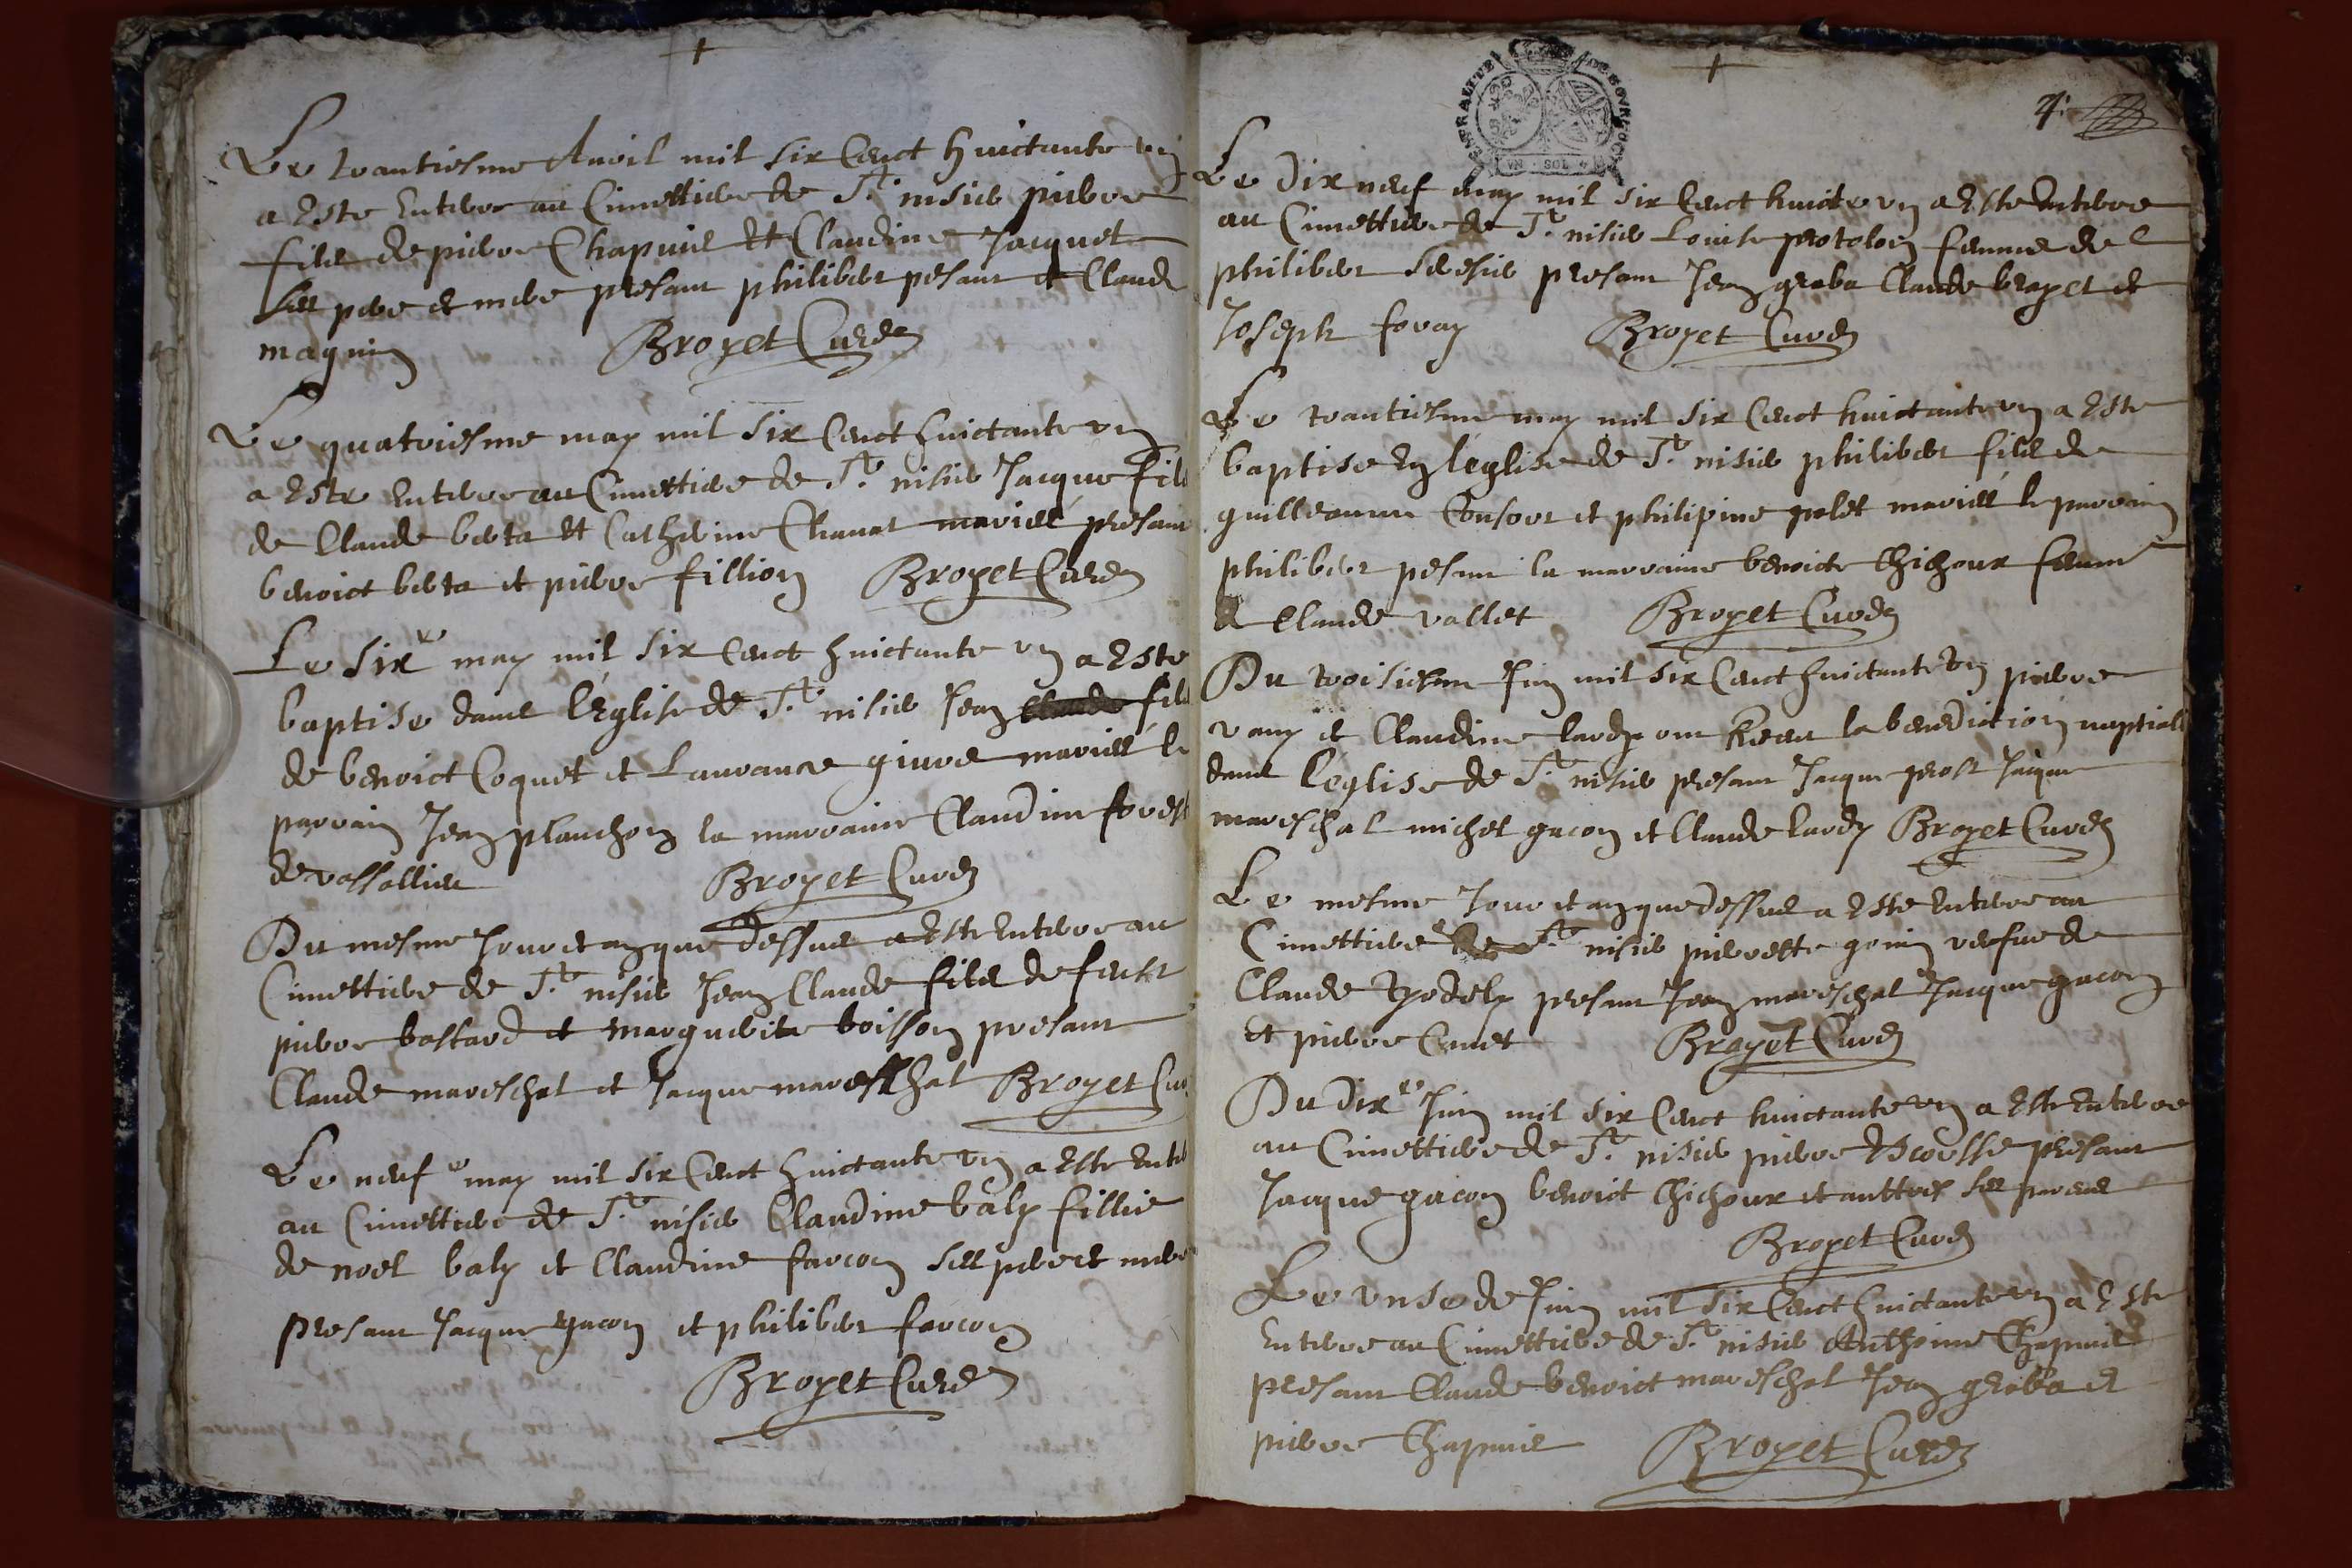 Le trantiesme Avril mil six cent huictante un
a Este Enterre au Cimettiere de St. nisier pierre
fils de pierre Chapuis Et Claudine Jacquet
ses pere et mere presant philibert pesant et Claude
magnin Broyet Curé
Le quatriesme may mil six cent huictante un
a Este Enterre au Cimettiere de St. nisier Jacque fils
de Claude berta Et Catherine Chanat mariés presant
benoict berta et pierre fillion Broyet Curé
Le sixe may mil six cent huictante un a Este
baptise dans l'Eglise de St. nisier Jean Claude fils
de benoict Coquet et Laurance givre mariés le
parrain Jean planchon la marraine Claudine forest
de vassallieu Broyet Curé
Du mesme Jour et an que dessus a Este Enterre au
Cimettiere de St. nisier Jean Claude fils de feust
pierre bastard et marguerite boisson presant
Claude mareschal et Jacque mareschal Broyet Cur
Le neufe may mil six cent huictante un a Este Enter
au Cimettiere de St. nisier Claudine baly fillie
de noel baly et Claudine farcon ses pere et mere
presant Jacque gacon et philibert farcon
Broyet Curé
4.
GENERALITE DE BOURGOG
UN SOL
Le dix neuf may mil six cent huicte un a Este Enterre
au Cimettiere de St. nisier Louise protolon femme de
philibert presant Jean graba Claude brayet et
Joseph foray Broyet Curé
Le trantiesme may mil six cent huictante un a Este
baptise En l'eglise de St. nisier philibert fils de
guilleaume Consort et philipine polet mariés le parrain
philibert pesant la marraine benoicte Chichoux femme
de Claude vallet Broyet Curé
Du troisiesme Juin mil six cent huictante un pierre
vany et Claudine lardy ont Receu la benediction nuptiale
dans l'eglise de St. nisier presant Jacque prost Jaque
mareschal michel gacon et Claude lardy Broyet Curé
Le mesme Jour et an que dessus a Este Enterre au
Cimettiere de St. nisier pierrette gonin vesfue de
Claude presant Jean mareschal Jacque gacon
et pierre Canet Broyet Curé
Du dixe Juin mil six cent huictante un a Este Enterre
au Cimettiere de St. nisier pierre Escosse presant
Jacque gacon benoict Chichoux et auttres ses parans
Broyet Curé
Le unse de Juin mil six cent huictante un a Este
Enterre au Cimettiere de St. nisier Anthoine Chapuis
presant Claude benoict mareschal Jean graba et
pierre Chapuis Broyet Curé